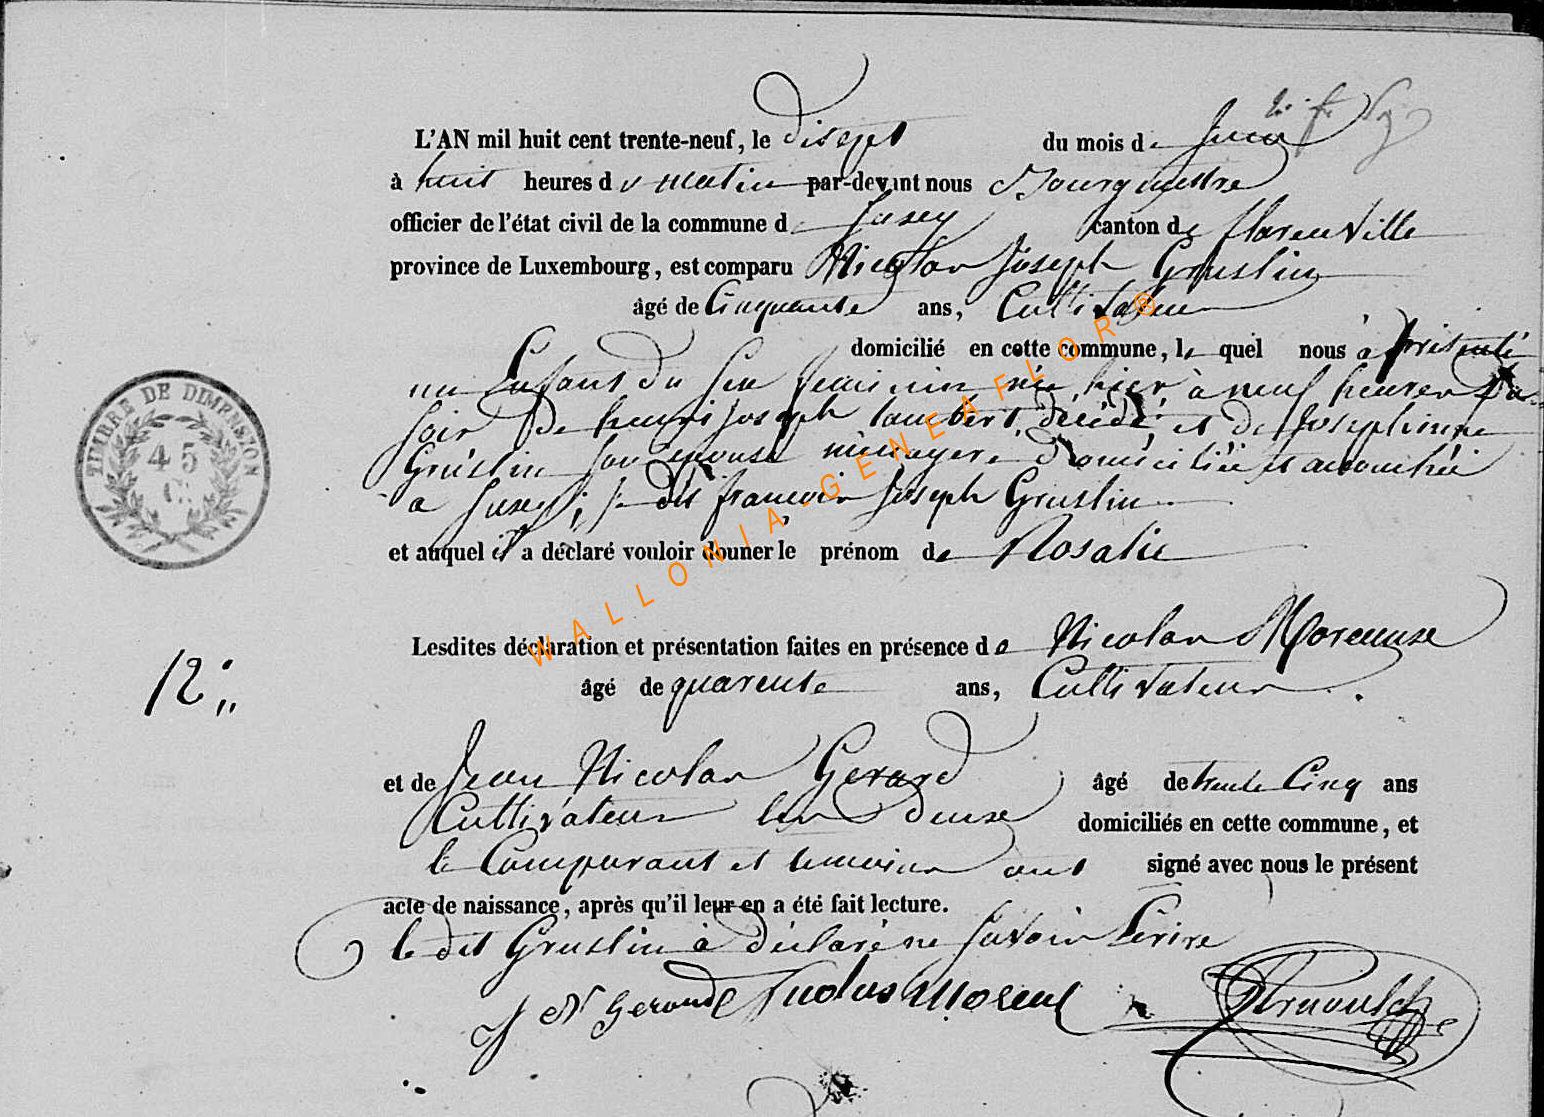 L'AN mil huit cent trente-neuf, le disept du mois de Juin
à huit heures du matin par-devant nous Bourgmestre
officier de l'état civil de la commune de Susey canton de florenville
province de Luxembourg, est comparu Nicolas Joseph Gruslin
âgé de Cinquante ans, Cultivateur
domicilié en cette commune, le quel nous à présenté
un Enfant du sexe feminin née hier, à neuf heures du
soir de henri joseph lambert, décédé, et de Josephinne
Gruslin son épouse ménagere, domiciliée et accouchée
a Susey; je dis françois Joseph Gruslin
et auquel il a déclaré vouloir donner le prénom de Rosalie
Lesdites déclaration et présentation faites en présence de Nicolas
âgé de quarente ans, Cultivateur.
12
et de Jean Nicolas Gerard âgé de trente Cinq ans
Cultivateur les deux domiciliés en cette commune, et
le Comparant et temoins ont signé avec nous le présent
acte de naissance, après qu'il leur en a été fait lecture.
le dit Gruslin à déclaré ne savoir Ecrire
J N Gerard Nicolas
TIMBRE DE DIMENSION
45
WALLONIA-GENEAFLOR®